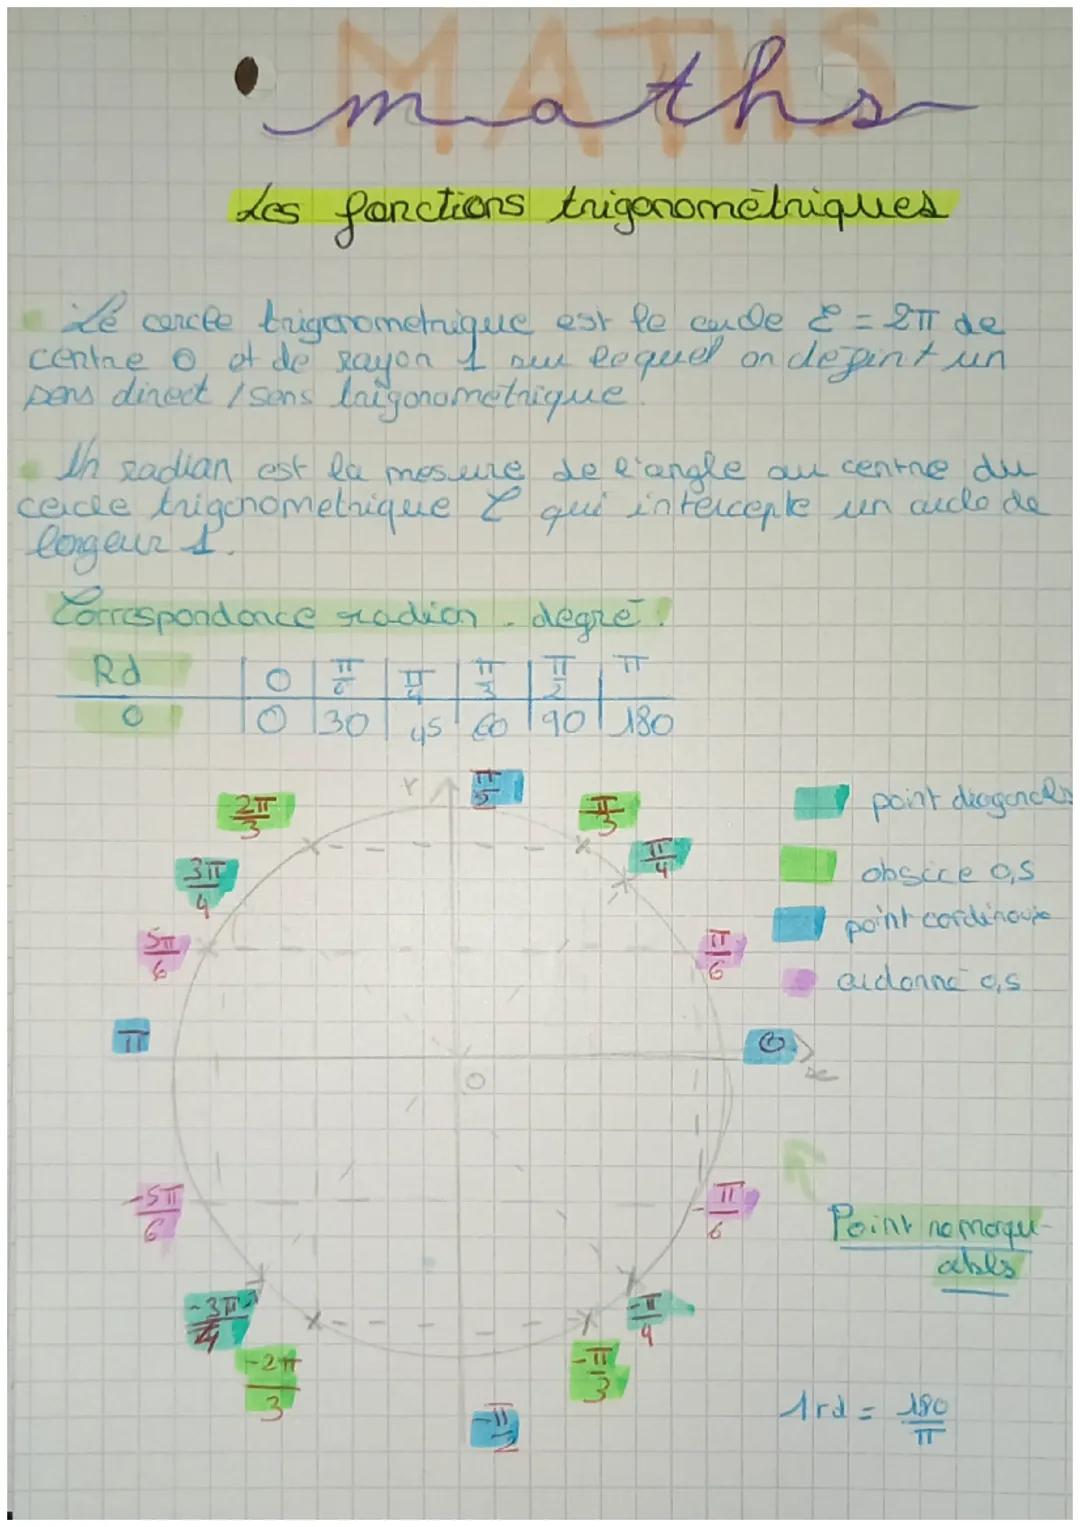 MATHS
maths
Les fonctions trigonométriques
Le cercle trigonometrique est le cercle C = 2π de
centre O et de rayon 1 sur lequel on définit un
sens direct / sens trigonometrique.
Un radian est la mesure de l'angle au centre du
cercle trigonometrique C qui intercepte un arc de
longeur 1.
Correspondance radian - degré.
Rd | 0 | π/6 | π/4 | π/3 | π/2 | π
0 | 0 | 30 | 45 | 60 | 90 | 180
Y π/2
2π/3 π/3 point diagonales
3π/4 π/4 obscice 0,5
5π/6 π/6 point cordinouie
ordonné 0,5
π 0
O x
-5π/6 -π/6 Point remarqu-
ables
-3π/4 -π/4
-2π/3 -π/3
-π/2 1rd = 180/π